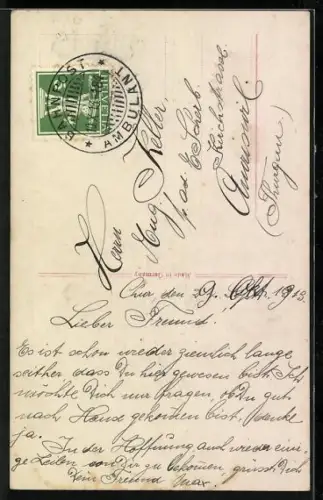 BAHNPOST
AMBULANT
HELVETIA
Herrn
Aug. Keller,
Kirchstrasse
Amriswil
(Thurgau)
Made in Germany
Chur den 9. Okt. 1913.
Lieber Freund!
Es ist schon wieder ziemlich lange
seither dass Du hier gewesen bist. Ich
möchte Dich nur fragen, ob Du gut
nach Hause gekommen bist, denke
ja. In der Hoffnung auch wieder eini-
ge Zeilen von Dir zu bekommen, grüsst Dich
Dein Freund Max!